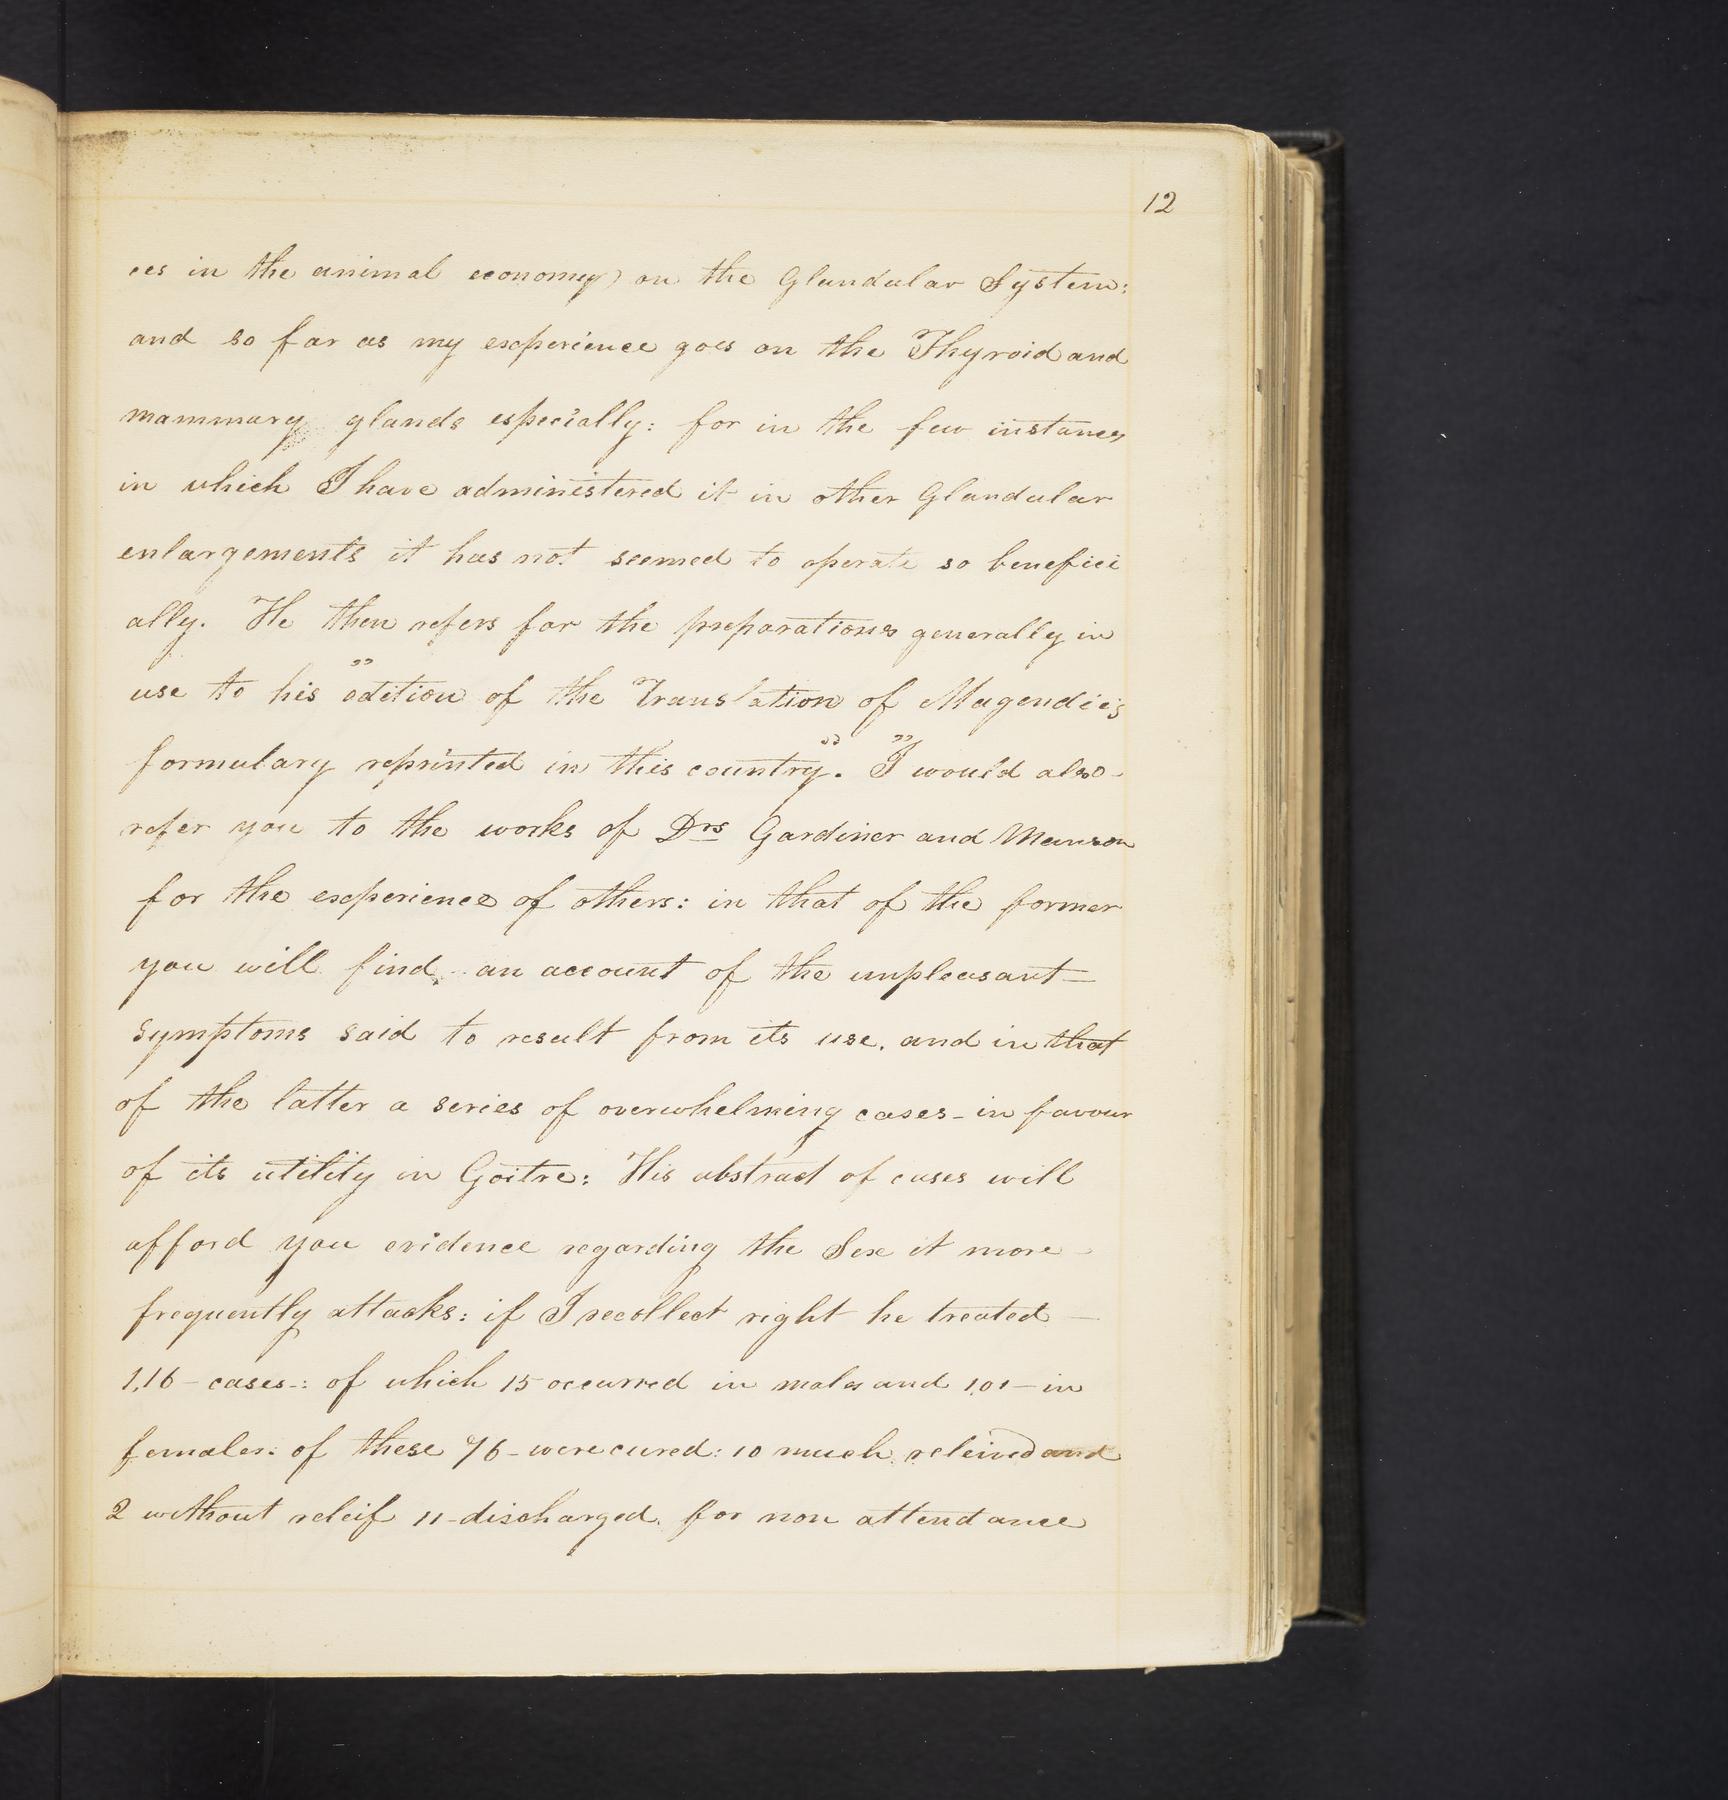 12
ces in the animal economy) on the Glandular System:
and so far as my experience goes on the Thyroid and
mammary glands especially: for in the few instances
in which I have administered it in other Glandular
enlargements it has not seemed to operate so benefici
ally. He then refers for the preparations generally in
use to his "edition of the Translation of Magendie's
formulary reprinted in this country". "I would also
refer you to the works of Drs Gardiner and Manson
for the experience of others: in that of the former
you will find an account of the unpleasant
symptoms said to result from its use. and in that
of the latter a series of overwhelming cases - in favour
of its utility in Goitre: His abstract of cases will
afford you evidence regarding the Sex it more
frequently attacks: if I recollect right he treated
1,16 - cases -: of which 15 occurred in males and 1,01 - in
females. of these 76 - were cured: 10 much releived and
2 without releif 11 - discharged. for non attendance